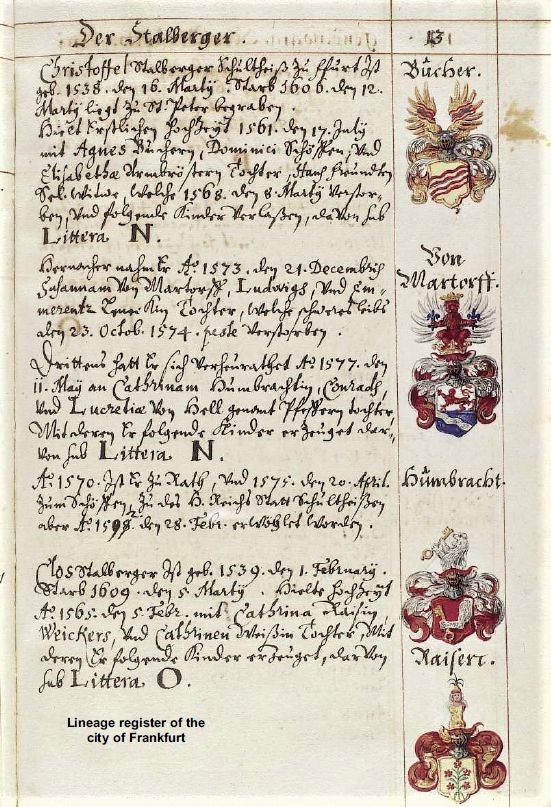 Der Stalberger.
13
Christoffel Stalberger Schultheiß zu ffurt Ist
geb. 1538. den 16. Marty. Starb 1606. den 12.
Marty ligt zu St. Peter begraben.
Hielt Erstlichen hochzeyt 1561. den 17. July
mit Agnes Büchern, Dominici Schöffen, und
Elisabethæ Armbrösterin Tochter, Hans
Sel. Witwe, welche 1568. den 8. Marty verstor-
ben, und folgende Kinder verlaßen, davon sub
Littera N.
Hernacher nahm Er Aº. 1573. den 21. Decembris
Susannam von Martorff, Ludwigs, und Em-
merentz Tochter, welche schweres leibs
den 23. Octob. 1574. peste verstorben.
Drittens hatt Er sich verheurathet Aº. 1577. den
11. May an Cathrinam Humbrachtin, Conradt
und Lucretiæ von Hell genant Pfeffern tochter,
Mit deren Er folgende Kinder erzeuget dar-
von sub Littera N.
Aº. 1570. Ist Er zu Rath, und 1575. den 20. April.
zum Schöffen, zu des H. Reichs Statt Schultheißen
aber Aº. den 28. Febr. erwöhlet worden.
Clos Stalberger Ist geb. 1539. den 1. February.
Starb 1609. den 5. Marty. Hielte hochzeyt
Aº. 1565. den 5. Febr. mit Cathrina Raisin
Weickers, und Cathrinen Weißin Tochter, Mit
deren Er folgende Kinder erzeuget, dar von
sub Littera O.
Bücher.
Von
Martorff.
Humbracht.
Raisen.
Lineage register of the
city of Frankfurt